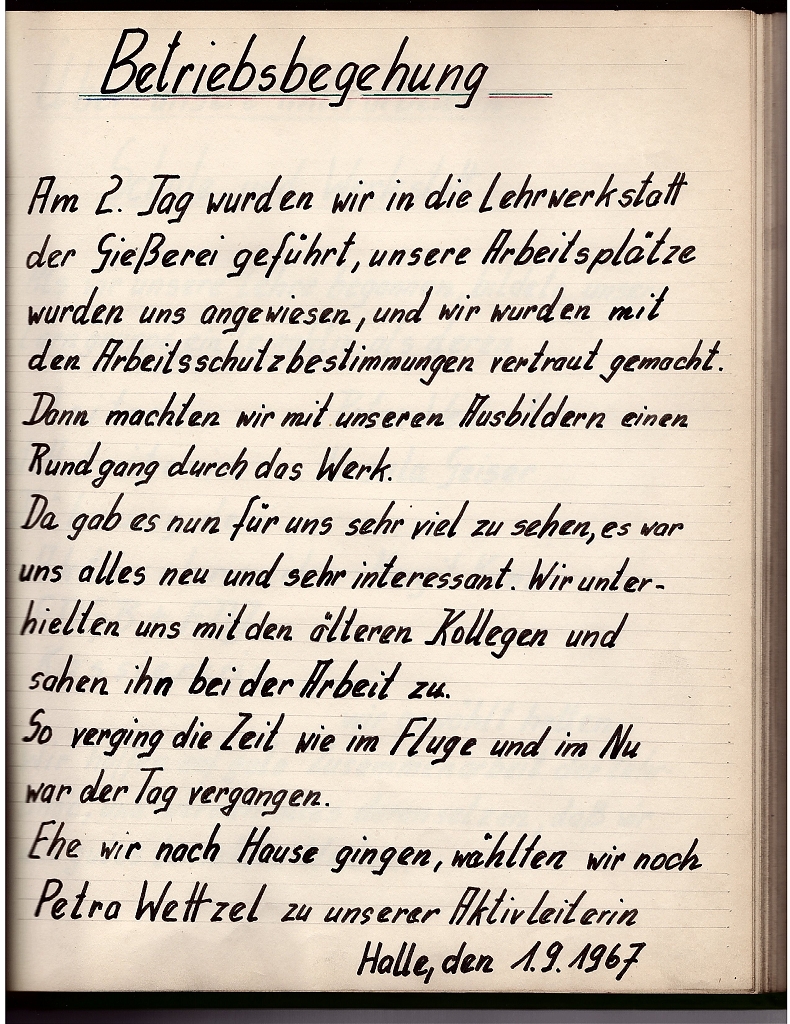 Betriebsbegehung
Am 2. Tag wurden wir in die Lehrwerkstatt
der Gießerei geführt, unsere Arbeitsplätze
wurden uns angewiesen, und wir wurden mit
den Arbeitsschutzbestimmungen vertraut gemacht.
Dann machten wir mit unseren Ausbildern einen
Rundgang durch das Werk.
Da gab es nun für uns sehr viel zu sehen, es war
uns alles neu und sehr interessant. Wir unter-
hielten uns mit den älteren Kollegen und
sahen ihn bei der Arbeit zu.
So verging die Zeit wie im Fluge und im Nu
war der Tag vergangen.
Ehe wir nach Hause gingen, wählten wir noch
Petra Wettzel zu unserer Aktivleiterin
Halle, den 1.9.1967